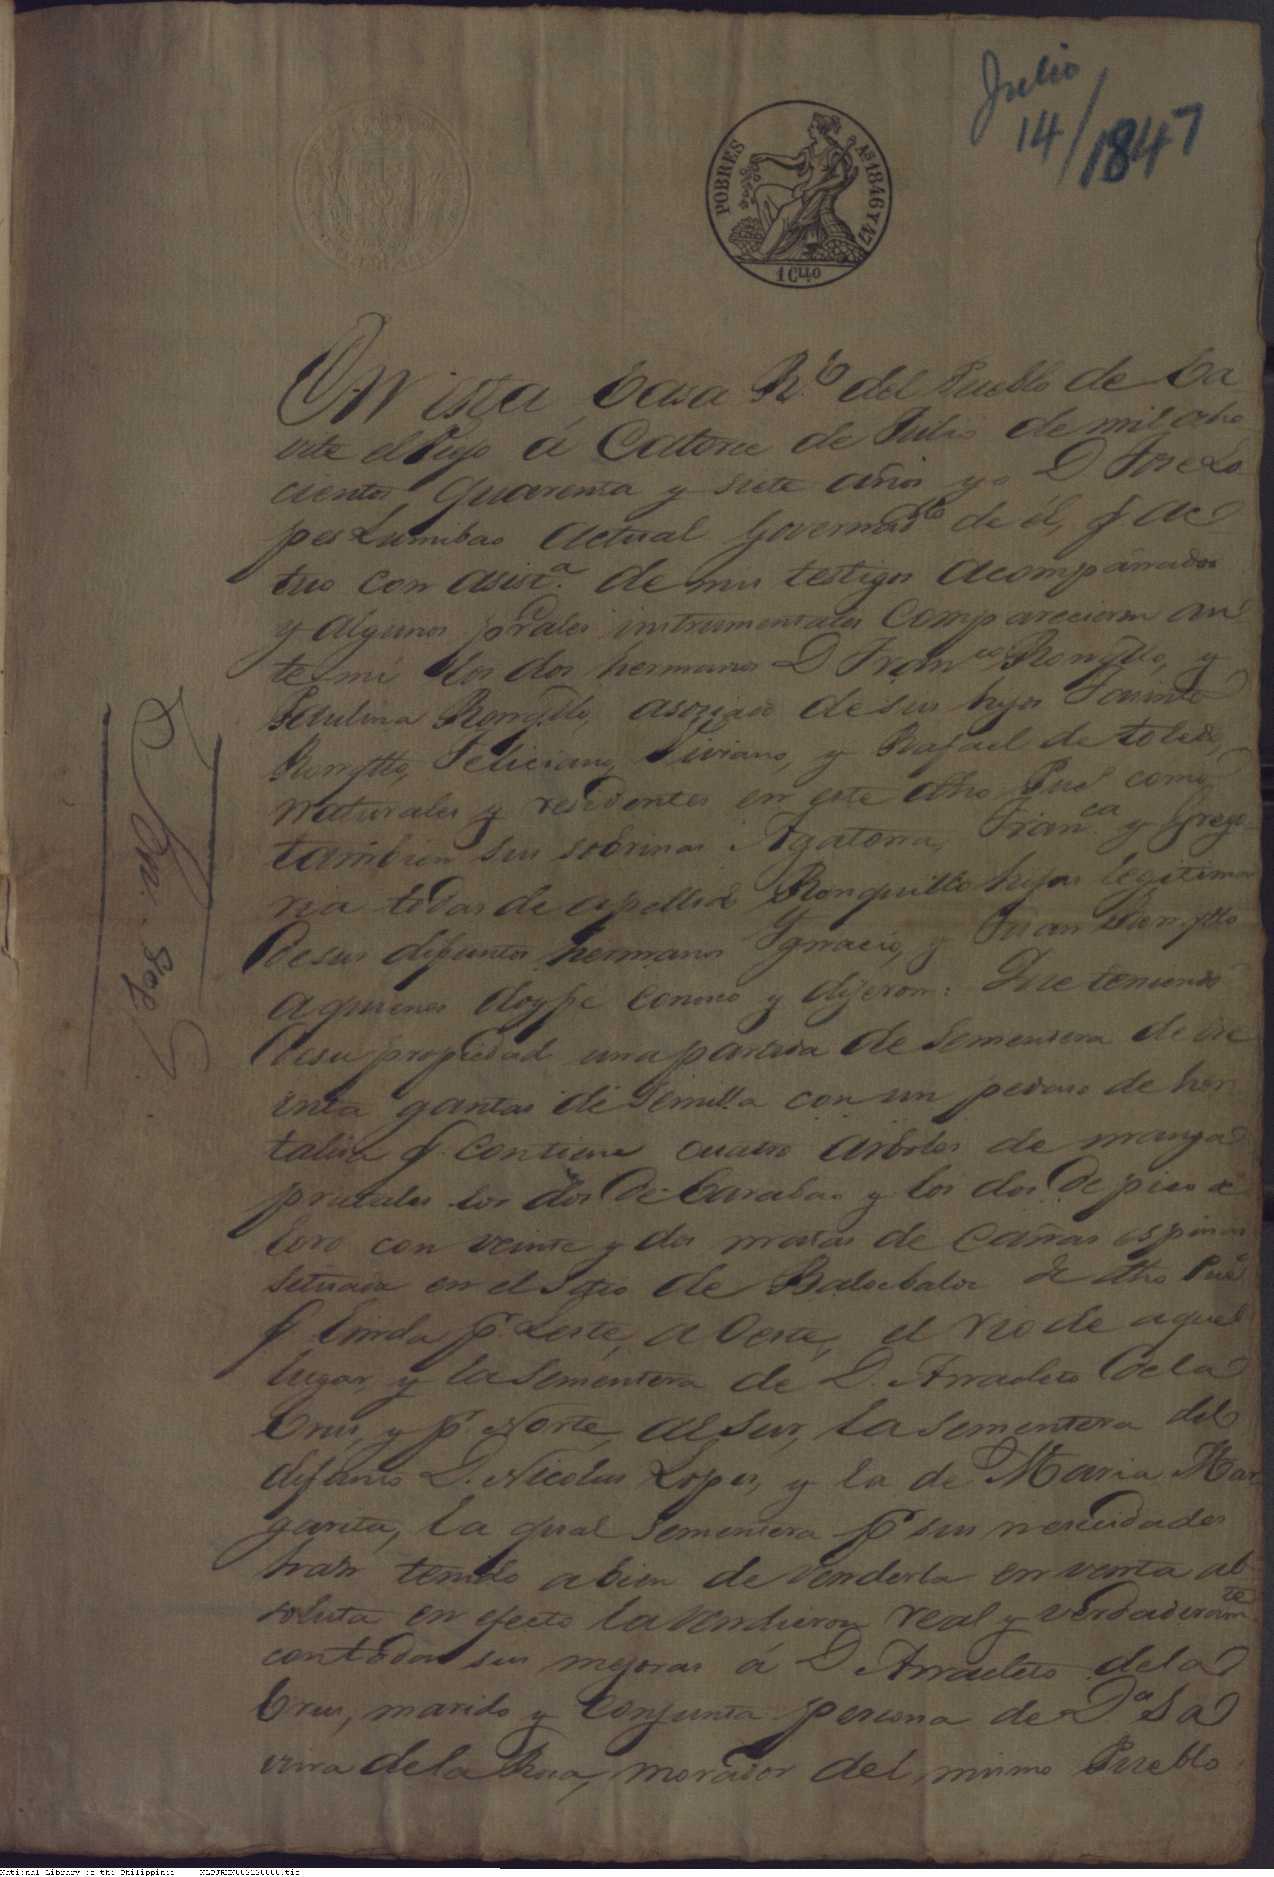 Julio
14/1847
POBRES
AS 1846 Y 47
1 C 40
En esta Casa R.l del Pueblo de Ca
vite el Viejo á Catorce de Julio de mil ocho
cientos quarenta y siete años yo D. Jose Lo
pes Lumibao actual Governad.lo de él, q ac
tuo con asist.a de mis testigos acompañados
y algunos prâles instrumentales comparecieron an
te mi los dos hermanos D. Fran.co Ronqllo, y
Paulina Ronqllo, asociado de sus hijos Jacinto
Ronqllo, Feliciano, Viviano, y Rafael de toledo,
naturales y residentes en este dho Pueo como
tambien sus sobrinas Agatona, Fran.ca y Grego
ria todas de apellido Ronquillo hijas legitimas
de sus difuntos hermanos Ygnacio, y Juan Ronqllo
aquienes doyfe conosco y dijeron: Que teniendo
desu propiedad una partida de Sementera de
gantas de Semilla con un pedaso de hor
talisa q. contiene cuatro arboles de manga
frutales los dos de Carabao y los dos de pico de
loro con veinte y dos matas de Cañas espinas
situada en el Sitio de Balocbaloc de dho Pueo
q linda p.r Leste, a Oeste, el rio de aquel
lugar, y la Sementera de D. Anacleto dela
Crus, y p.r Norte, al Sur, la sementera del
difunto D. Nicolas Lopes, y la de Maria Mar
garita, la qual Sementera p.r sus nesecidades
han tenido abien de venderla en venta ab
soluta en efecto la vendieron real y verdaderam.te
con todas sus mejoras á D. Anacleto dela
Crus, marido y Conjunta persona de D.a Sa
vina dela Rosa, morador del mismo Pueblo
National Library of the Philippines